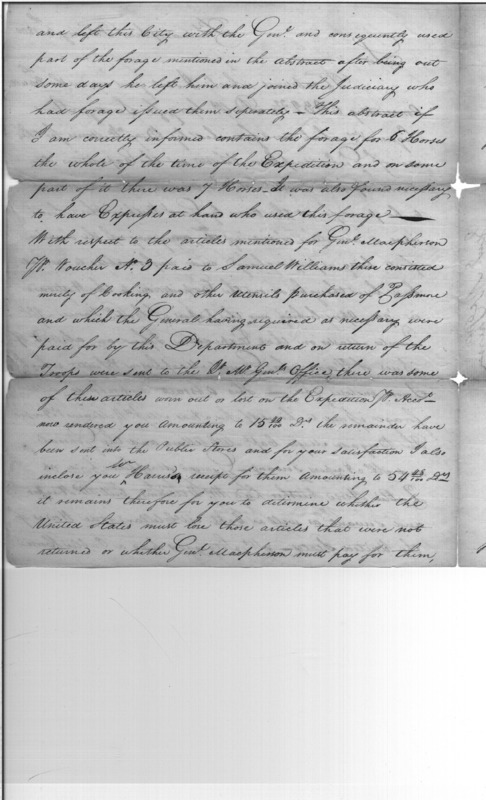 and left this City with the Genl. and consequently used
part of the forage mentioned in the abstract after being out
some days he left him and joined the Judiciary who
had forage issued them seperately – This abstract if
I am correctly informed contains the forage for 6 Horses
the whole of the time of the Expedition and on some
part of it there was 7 Horses – It was also found necessary
to have Expresses at hand who used this forage
With respect to the articles mentioned for Genl. Macpherson
Pr. Voucher N. 3 paid to Samuel Williams these consisted
merely of Cooking, and other utensils purchased of Passmore
and which the General having required as necessary were
paid for by this Department and on return of the
Troops were sent to the Qr. Mr. Genls. Office, there was some
of these articles worn out or lost on the Expedition Pr. Acct.
now rendered you amounting to 15 Ds. the remainder have
been sent into the Public Stores and for your satisfaction I also
inclose you Mr Harris's receipt for them amounting to 54 Ds
it remains therefore for you to ditermine whether the
United States must lose those articles that were not
returned or whether Genl. Macpherson must pay for them,